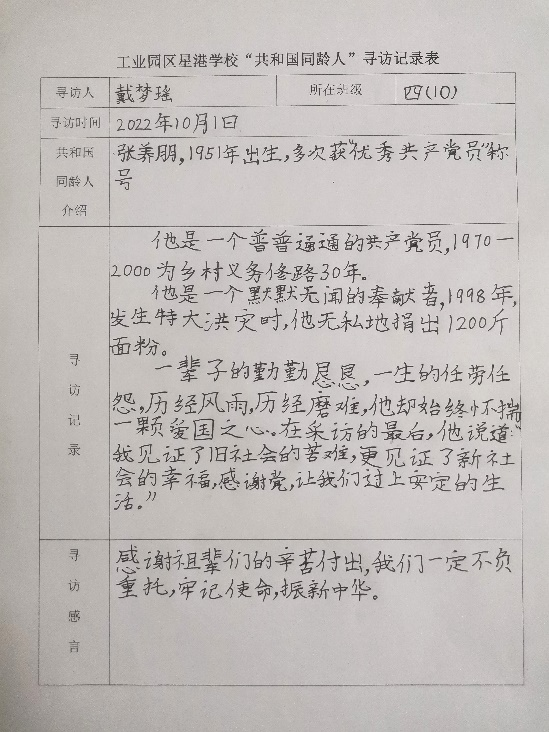 工业园区星港学校“共和国同龄人”寻访记录表
寻访人 戴梦瑶 所在班级 四(10)
寻访时间 2022年10月1日
共和国
同龄人
介绍
张养朋,1951年出生,多次获“优秀共产党员”称
号
寻
访
记
录
他是一个普普通通的共产党员,1970一
2000为乡村义务修路30年。
他是一个默默无闻的奉献者,1998年,
发生特大洪灾时,他无私地捐出1200斤
面粉。
一辈子的勤勤恳恳,一生的任劳任
怨,历经风雨,历经磨难,他却始终怀揣
一颗爱国之心。在采访的最后,他说道:“
我见证了旧社会的苦难,更见证了新社
会的幸福,感谢党,让我们过上安定的生
活。”
寻
访
感
言
感谢祖辈们的辛苦付出,我们一定不负
重托,牢记使命,振新中华。